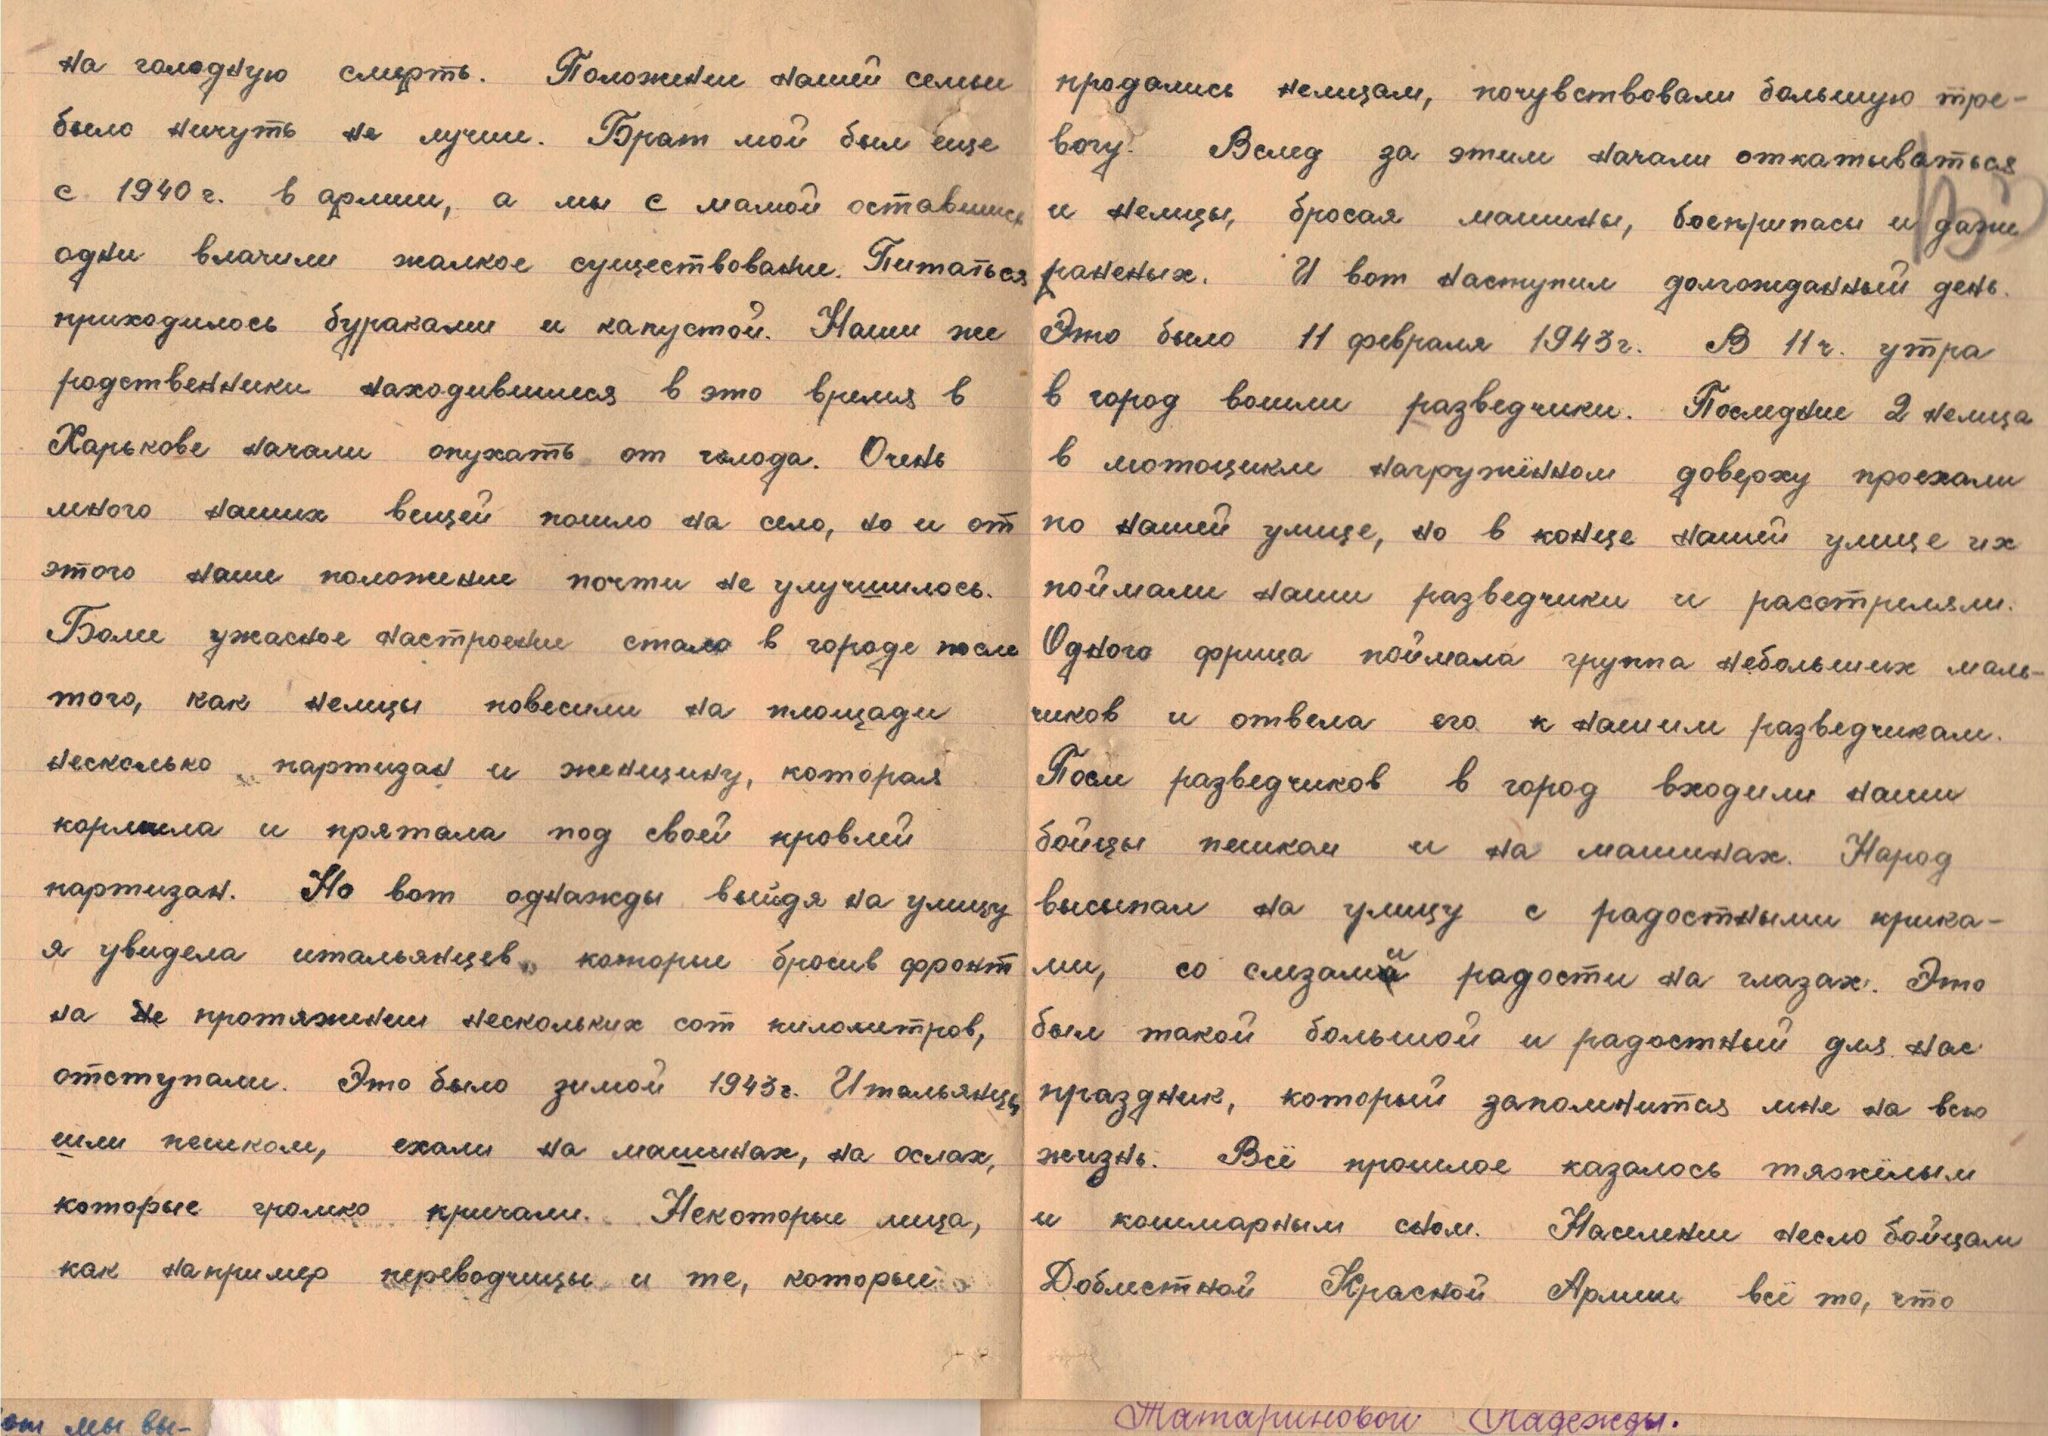 на голодную смерть. Положение нашей семьи
было ничуть не лучше. Брат мой был еще
с 1940 г. в армии, а мы с мамой оставшись
одни влачили жалкое существование. Питаться
приходилось бураками и капустой. Наши же
родственники находившиеся в это время в
Харькове начали опухать от голода. Очень
много наших вещей пошло на село, но и от
этого наше положение почти не улучшилось.
Более ужасное настроение стало в городе после
того, как немцы повесили на площади
несколько партизан и женщину, которая
кормила и прятала под своей кровлей
партизан. Но вот однажды выйдя на улицу
я увидела итальянцев, которые бросив фронт
на протяжении нескольких сот километров,
отступали. Это было зимой 1943 г. Итальянцы
шли пешком, ехали на машинах, на ослах,
которые громко кричали. Некоторые лица,
как например переводчицы и те, которые
продались немцам, почувствовали большую тре-
вогу. Вслед за этим начали откатываться
и немцы, бросая машины, боеприпасы и даже
раненых. И вот наступил долгожданный день.
Это было 11 февраля 1943 г. В 11 ч. утра
в город вошли разведчики. Последние 2 немца
в мотоцикле нагружённом доверху проехали
по нашей улице, но в конце нашей улице их
поймали наши разведчики и расстреляли.
Одного фрица поймала группа небольших маль-
чиков и отвела его к нашим разведчикам.
После разведчиков в город входили наши
бойцы пешком и на машинах. Народ
высыпал на улицу с радостными крика-
ми, со слезами радости на глазах. Это
был такой большой и радостный для нас
праздник, который запомнится мне на всю
жизнь. Всё прошлое казалось тяжёлым
и кошмарным сном. Население несло бойцам
Доблестной Красной Армии всё то, что
мы вы-
Татариновой Надежды.